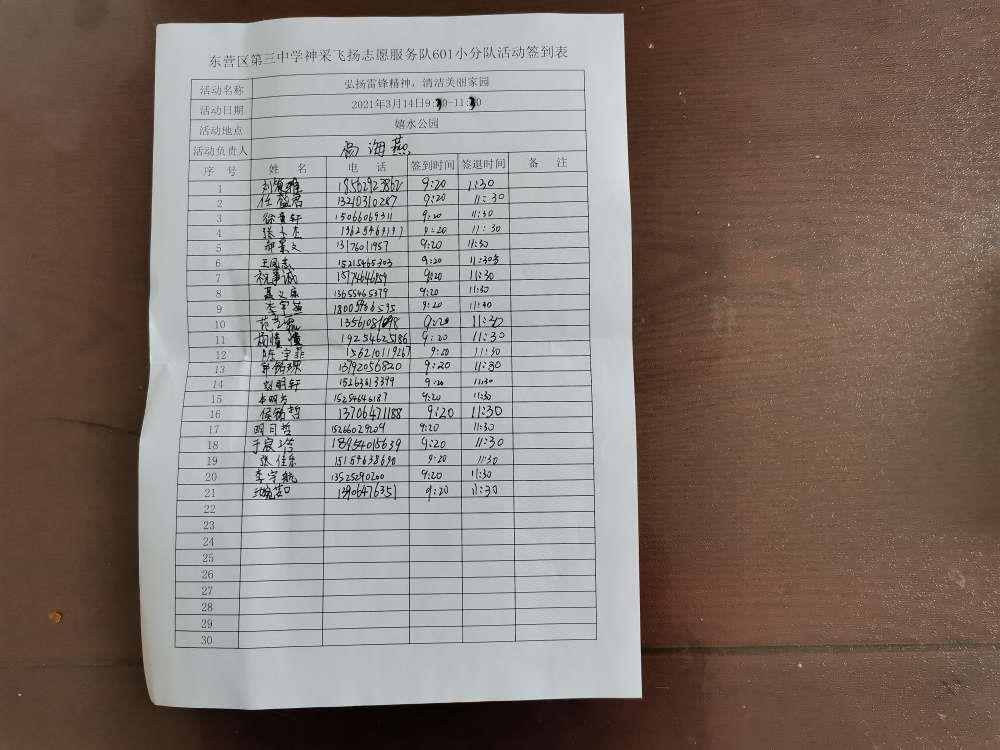 东营区第三中学神采飞扬志愿服务队601小分队活动签到表
活动名称 弘扬雷锋精神，清洁美丽家园
活动日期 2021年3月14日9:30-11:30
活动地点 嬉水公园
活动负责人 海燕
序 号 姓 名 电 话 签到时间 签退时间 备 注
1 18562923862 9:20 11:30
2 任 13210310287 9:20 11:30
3 徐 轩 15066069311 9:20 11:30
4 张 9:20 11:30
5 郝景文 13176011957 9:20 11:30
6 王 志 15215465303 9:20 11:30
7 祝 诚 9:20 11:30
8 13655465379 9:20 11:30
9 李宇 9:20 11:30
10 范 9:20 11:30
11 19254625186 9:20 11:30
12 陈宇菲 15621011926 9:20 11:30
13 郭铭 13792056820 9:20 11:30
14 明轩 15263813399 9:20 11:30
15 15254646187 9:20 11:30
16 侯铭哲 13706471188 9:20 11:30
17 明 哲 15266029209 9:20 11:30
18 于宸 18954015639 9:20 11:30
19 张佳乐 15154638690 9:20 11:30
20 李宇航 13525290200 9:20 11:30
21 13906476351 9:20 11:30
22
23
24
25
26
27
28
29
30